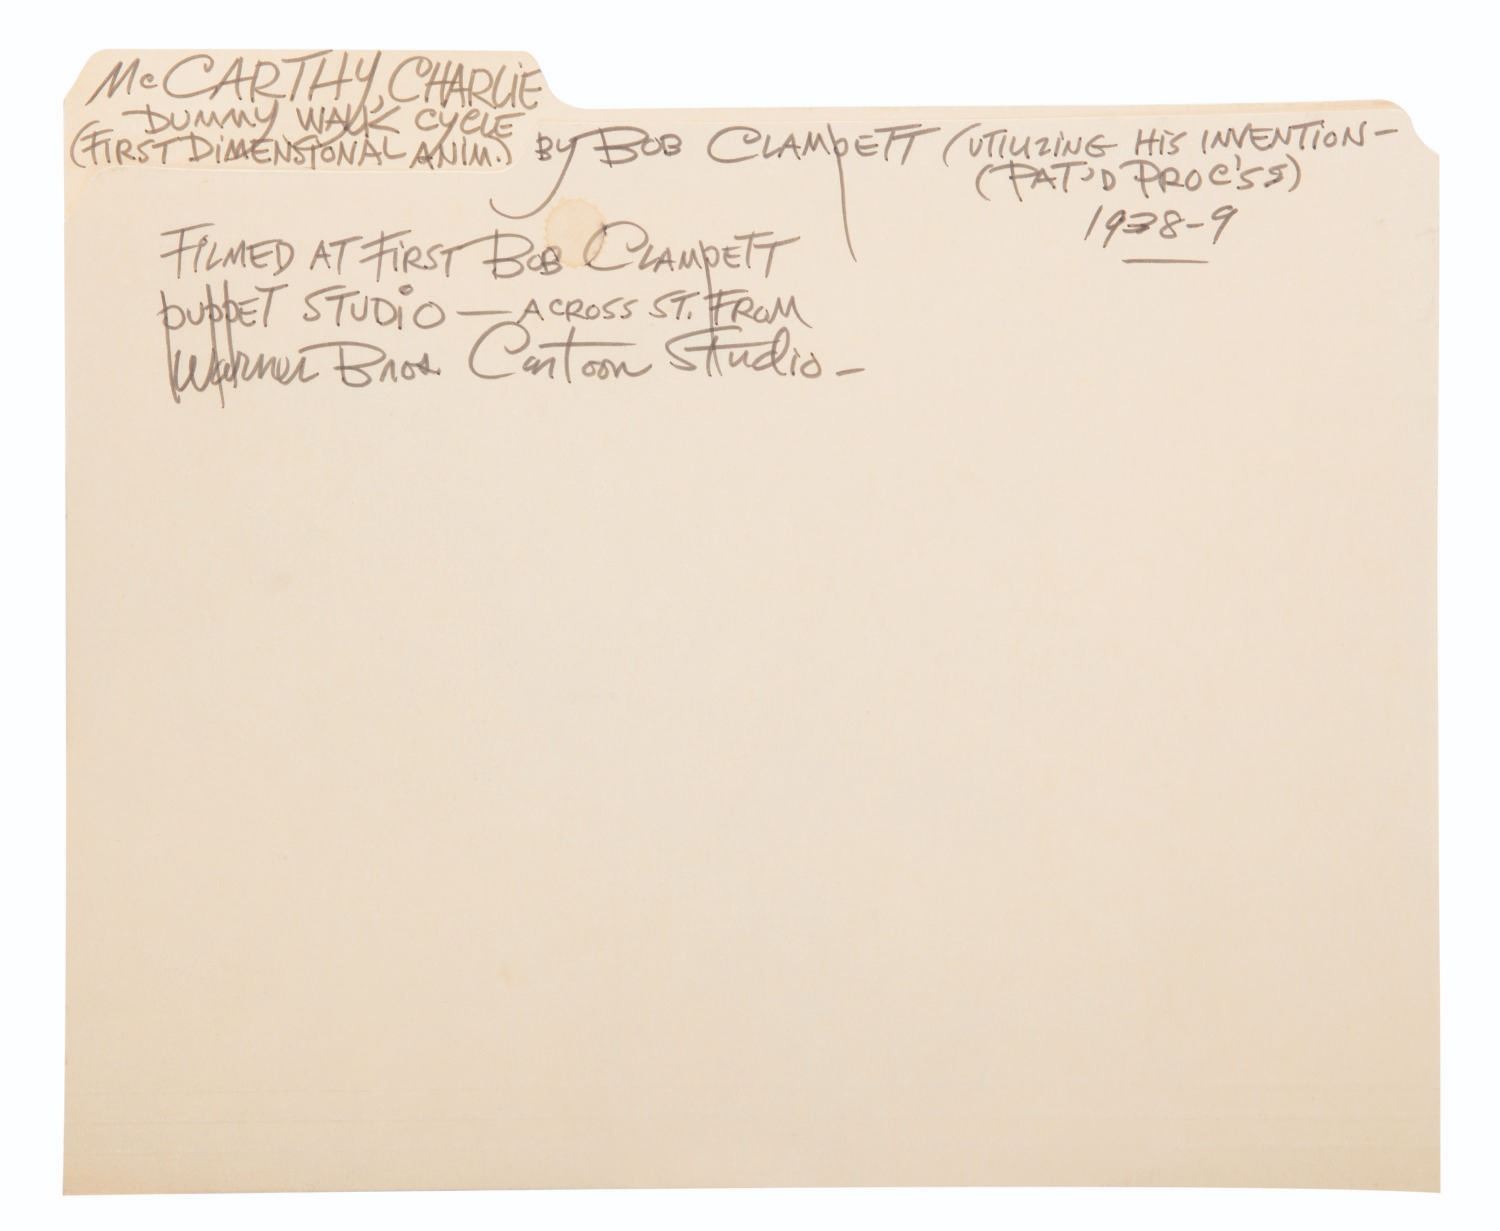 McCARTHY, CHARLIE
DUMMY WALK CYCLE
(FIRST DIMENSIONAL ANIM.) BY BOB CLAMPETT (UTILIZING HIS INVENTION-
(PAT'D PROC'SS)
1938-9
FILMED AT FIRST BOB CLAMPETT
PUPPET STUDIO — ACROSS ST. FROM
Warner Bros. Cartoon Studio —